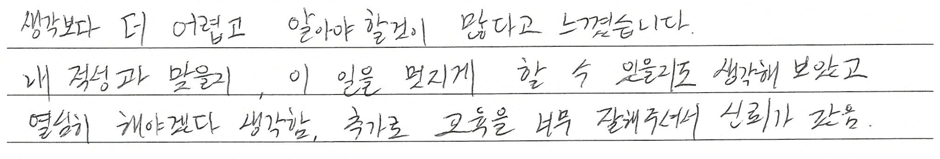 생각보다 더 어렵고 알아야 할것이 많다고 느꼈습니다.
내 적성과 맞을지, 이 일을 멋지게 할 수 있을지도 생각해 보았고
열심히 해야겠다 생각함, 추가로 교육을 너무 잘해주셔서 신뢰가 갔음.